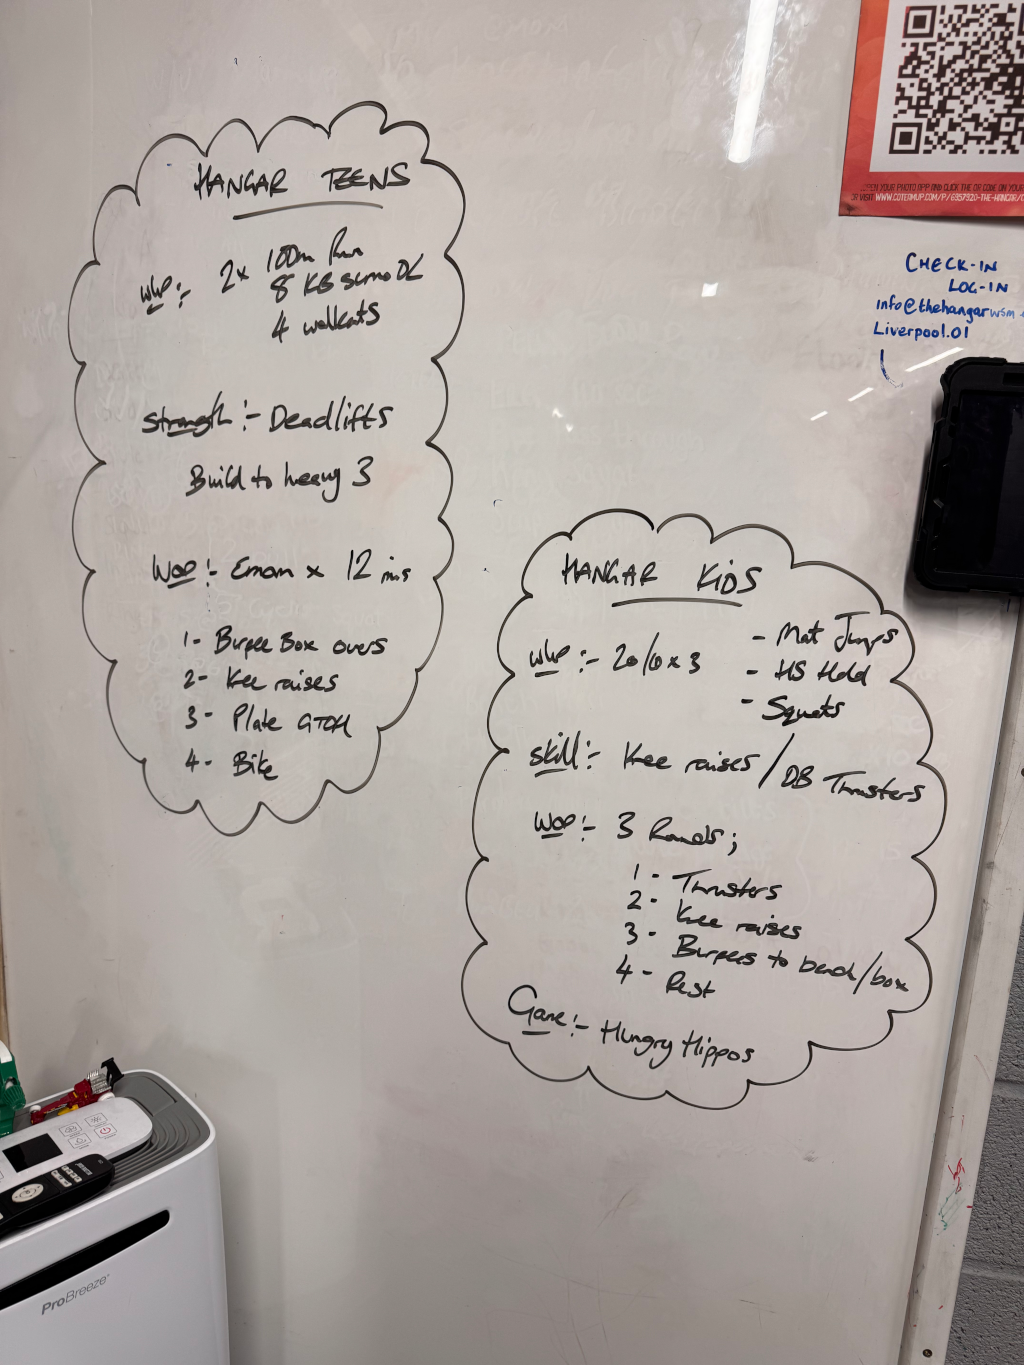 HANGAR TEENS
WUP :- 2x 100m Run
8 KB Sumo DL
4 walkouts
Strength :- Deadlifts
Build to heavy 3
WOD :- Emom x 12 mins
1 - Burpee Box overs
2 - Knee raises
3 - Plate GTOH
4 - Bike
HANGAR KIDS
WUP :- 20/10 x 3
- Mat Jumps
- HS Hold
- Squats
Skill :- Knee raises / DB Thrusters
WOD :- 3 Rounds;
1 - Thrusters
2 - Knee raises
3 - Burpees to bench/box
4 - Rest
Game :- Hungry Hippos
OPEN YOUR PHOTO APP AND CLICK THE QR CODE ON YOUR
OR VISIT WWW.GOTEAMUP.COM/P/6957920-THE-HANGAR/
CHECK-IN
LOG-IN
info@thehangarwsm
Liverpool.01
ProBreeze